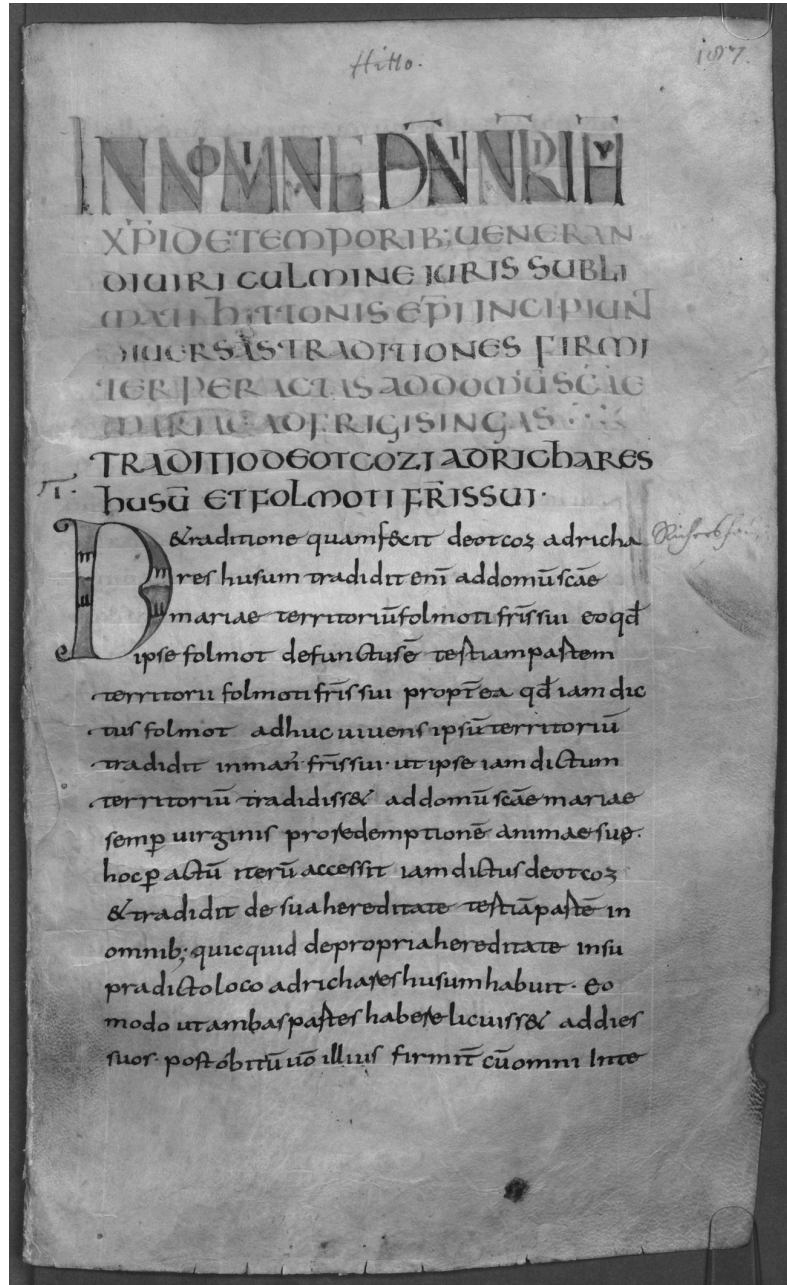 Hitto. 187.
IN NOMINE DNI NRI IHU
XPI DE TEMPORIB; UENERAN
DI UIRI CULMINE IURIS SUBLI
MATI hITTONIS EPI INCIPIUNT
DIUERSAS TRADITIONES FIRMI
TER PERACTAS AD DOMUM SCAE
MARIAE AD FRIGISINGAS
TRADITIO DEOTCOZI AD RIChARES
T. hUSU ET FOLMOTI FRISSUI.
De traditione quam fecit deotcoz ad richa
res husum tradidit eni ad domū scāe
mariae territoriū folmoti frissui eo qđ
ipse folmot defunctus ē tertiam partem
territorii folmoti frissui propt ea qđ iam dic
tus folmot adhuc uiuens ipsū territoriū
tradidit in man frissui. ut ipse iam dictum
territoriū tradidiss& ad domū scāe mariae
semp uirginis pro redemptionē animae suę.
hoc p actū iterū accessit iam dictus deotcoz
& tradidit de sua hereditate tertiā partē in
omnib; quicquid de propria hereditate in su
pradicto loco ad richares husum habuit. eo
modo ut ambas partes habere licuiss& ad dies
suos. post obitū uō illius firmit cū omni inte